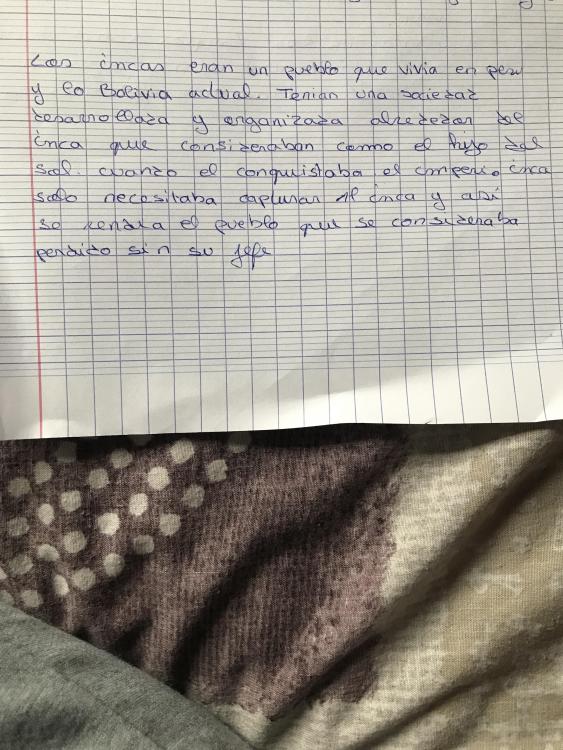 Los incas eran un pueblo que vivia en peru
y la Bolivia actual. Tenian una sociedad
desarrollada y organizada alrededor del
inca que consideraban como el hijo del
sol. cuando el conquistaba el imperio inca
solo necesitaba capturar el inca y asi
se rendia el pueblo que se consideraba
perdido sin su jefe